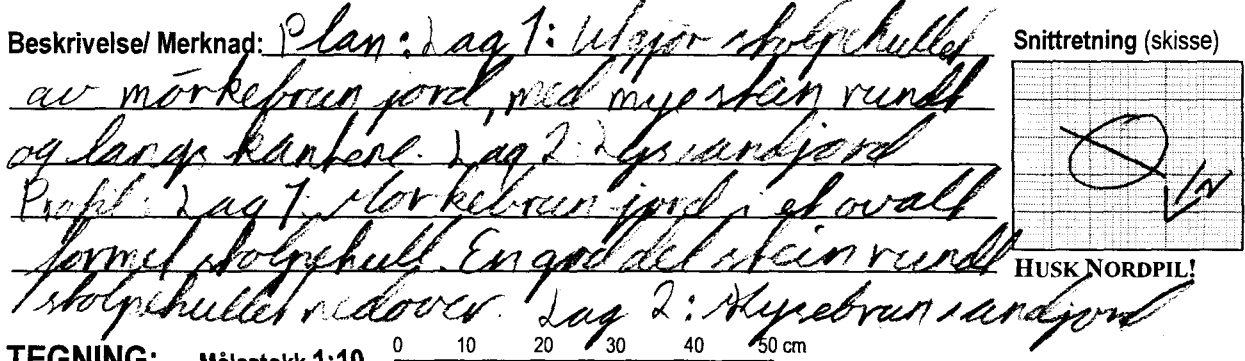 Beskrivelse/ Merknad: Plan: Lag 1: Utgjør stolpehullet
av mörkebrun jord, med mye stein rundt
og langs kantene. Lag 2: Lys sandjord
Profil: Lag 1. Mörkebrun jord i et ovalt
formet stolpehull. En god del stein rundt
stolpehullet nedover. Lag 2: Lysebrun sandjord
Snittretning (skisse)
N
HUSK NORDPIL!
TEGNING: Målestokk 1:10 0 10 20 30 40 50 cm